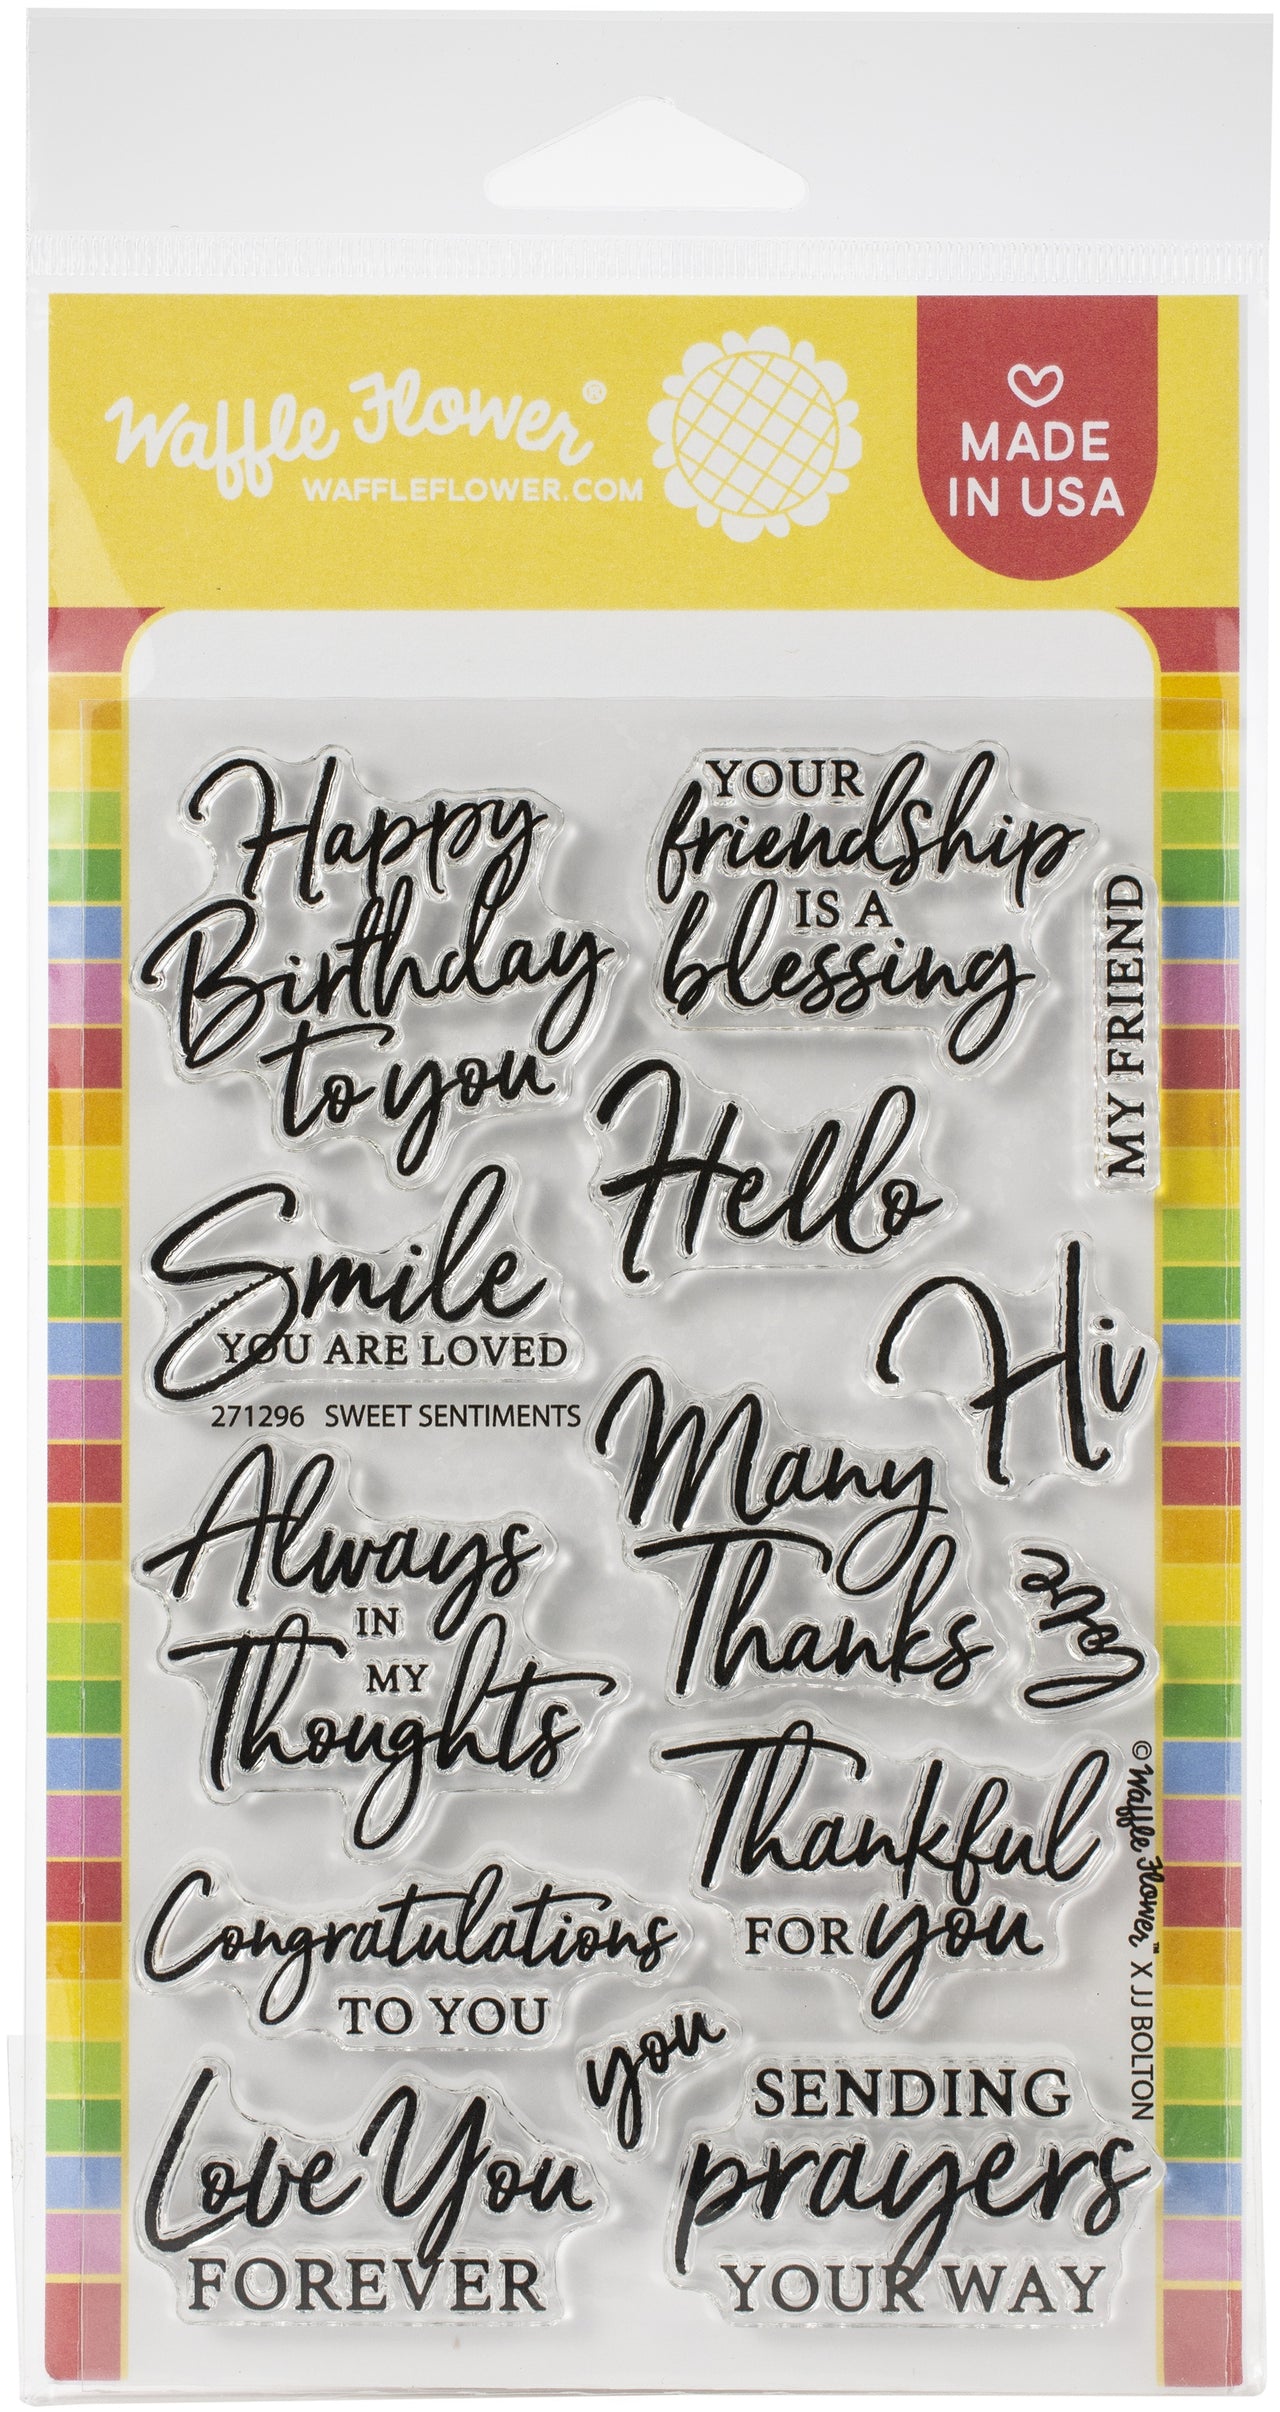 Waffle Flower®
WAFFLEFLOWER.COM
MADE
IN USA
Happy
Birthday
to you
YOUR
friendship
IS A
blessing
MY FRIEND
Hello
Smile
YOU ARE LOVED
271296 SWEET SENTIMENTS
Hi
Many
Thanks
Always
IN
MY
Thoughts
Thankful
FOR you
© Waffle Flower™ X JJ BOLTON
Congratulations
TO YOU
you
Love You
FOREVER
SENDING
prayers
YOUR WAY